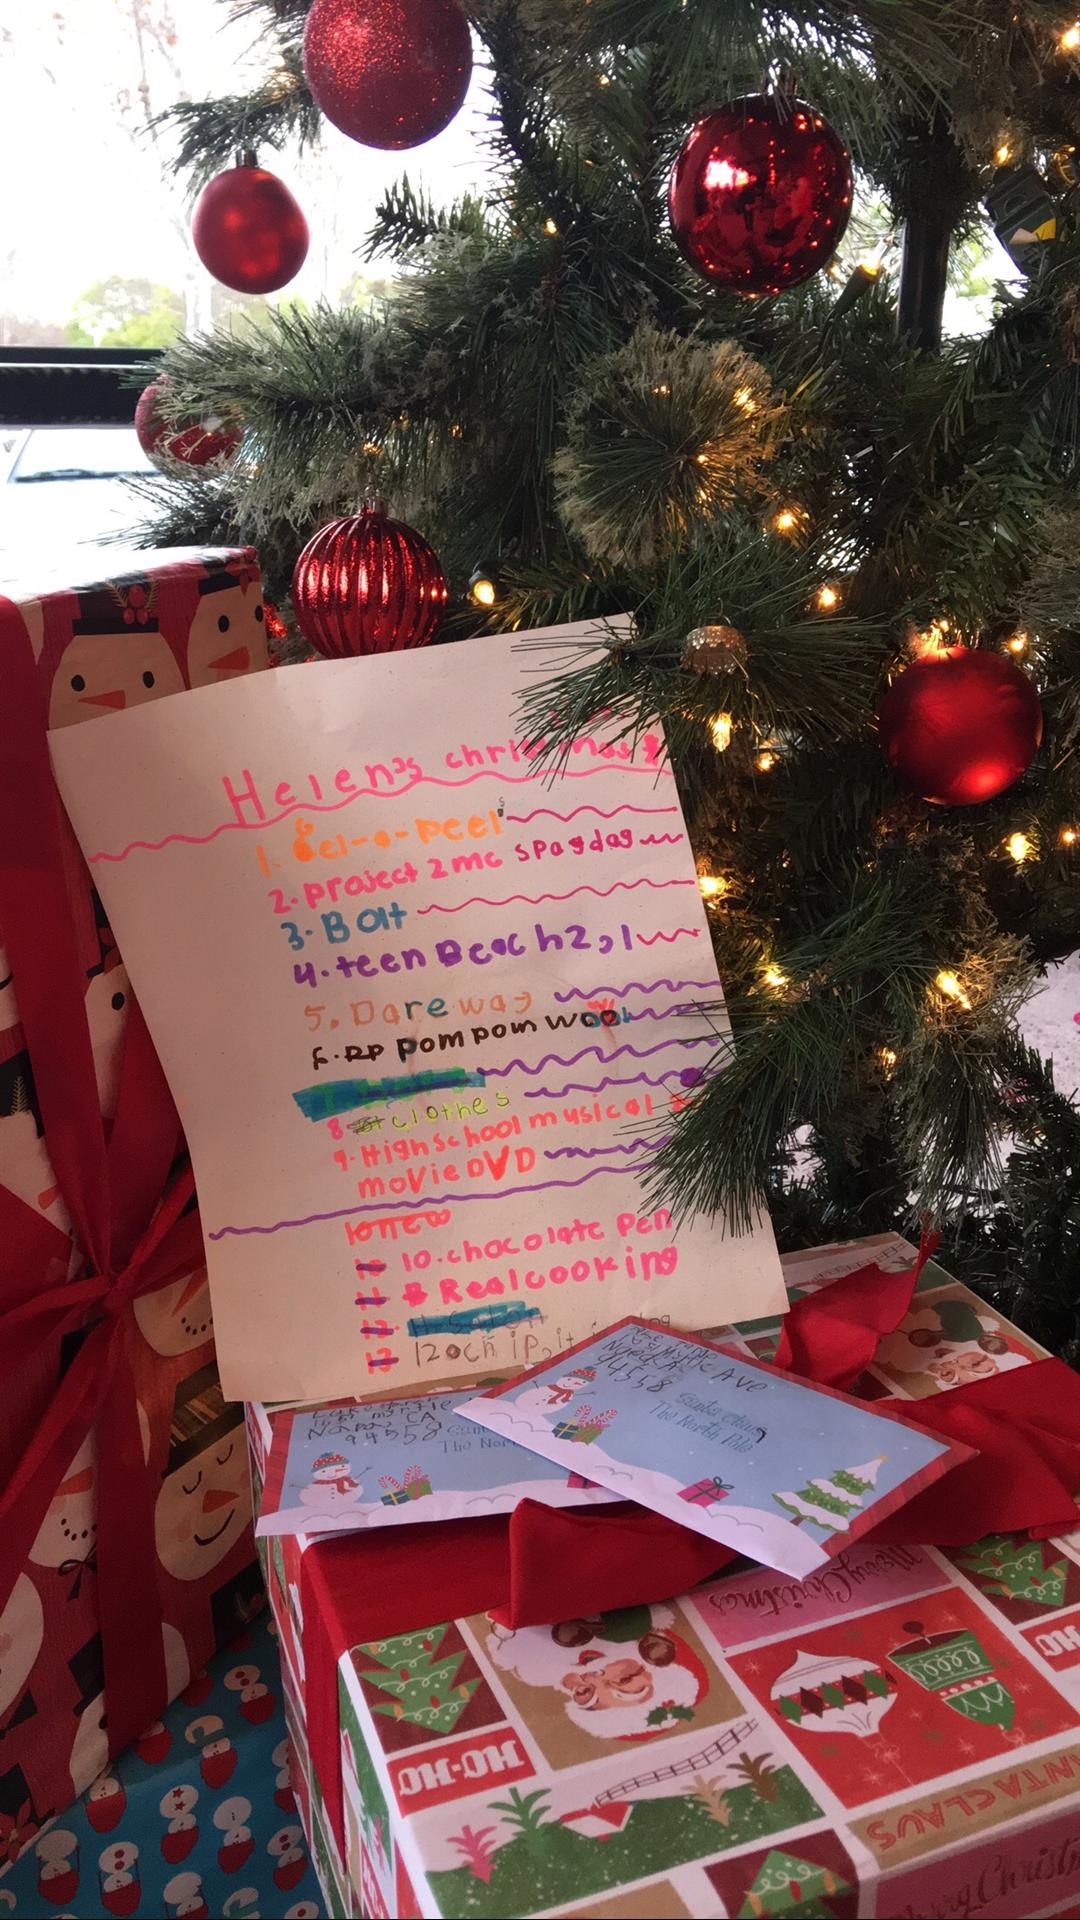 Helen's christmas
1. Gel-a-peel's
2. project 2mc spagdag
3. Bolt
4. teen Beach 2,1
5. Dare way
6. pompom wool
8. clothes
9. High school musical
movie DVD
10new
10 10. chocolate pen
11 Real cooking
12
13 12och ip,it
Napa CA
94558
Santa Claus
The North Pole
Myrtle Ave
Napa CA
94558
Santa Claus
The North Pole
Merry Christmas
HO-HO
HO
SANTA CLAUS
Merry Christmas